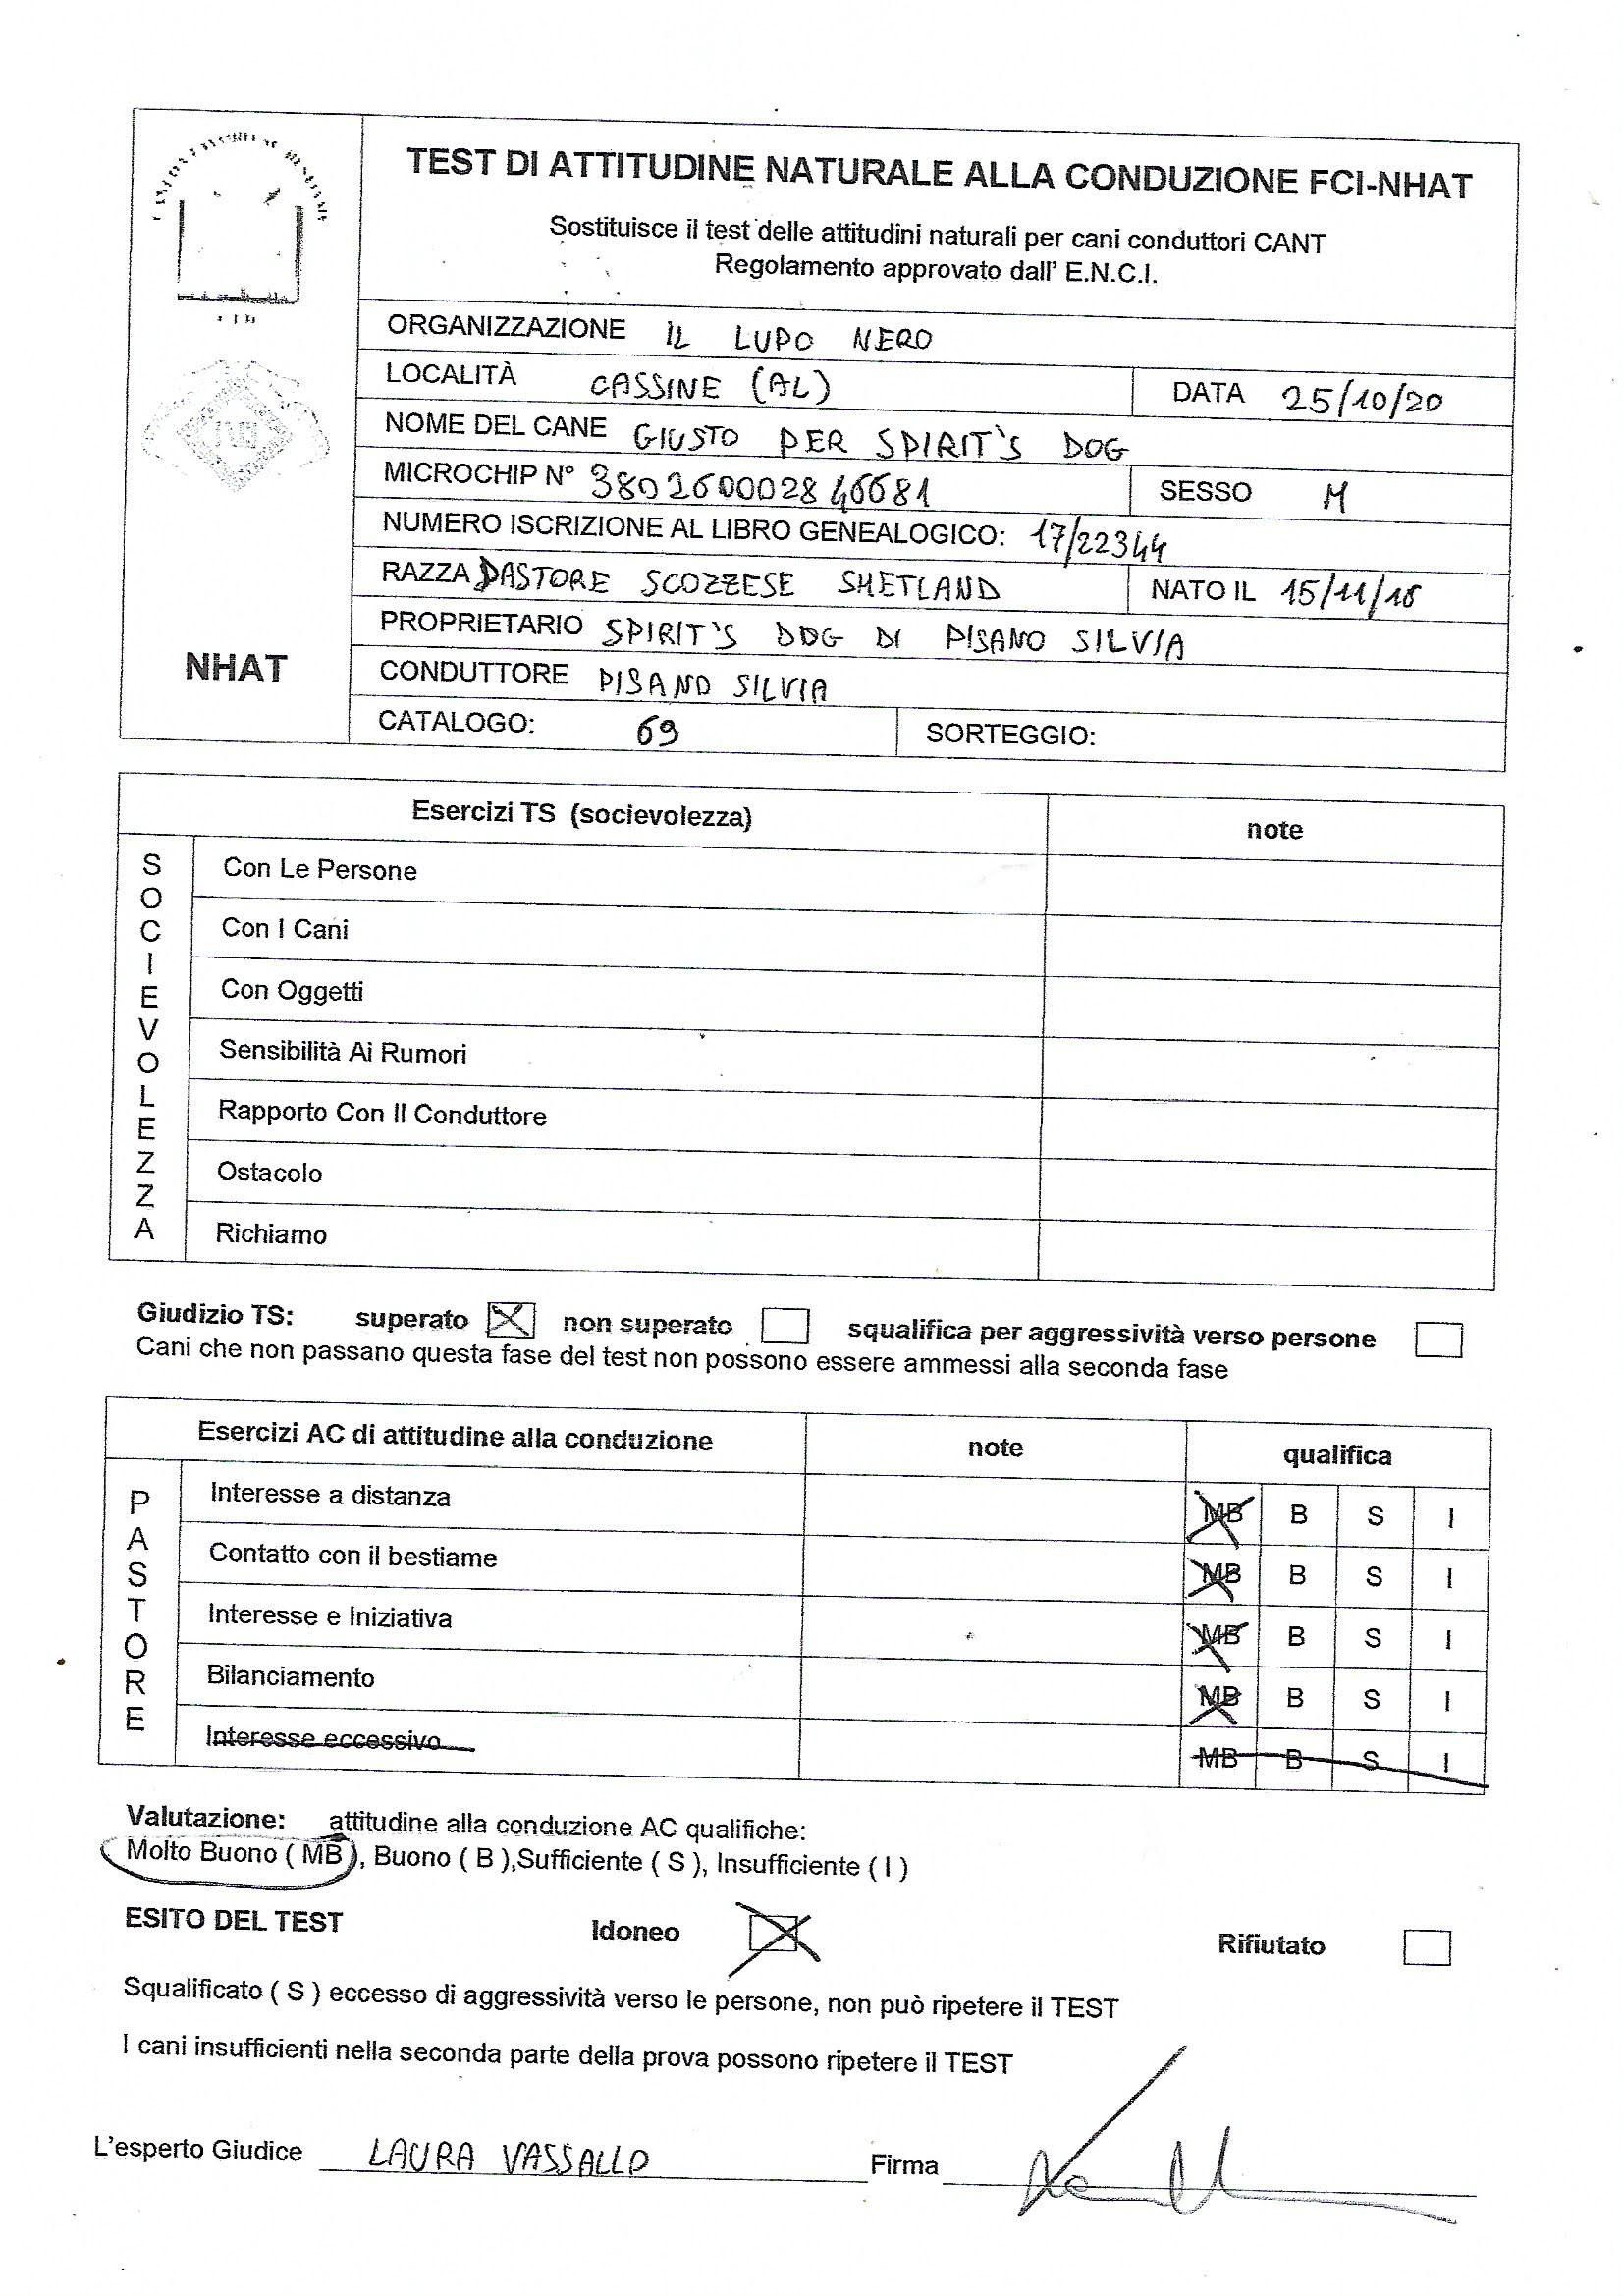 TEST DI ATTITUDINE NATURALE ALLA CONDUZIONE FCI-NHAT
Sostituisce il test delle attitudini naturali per cani conduttori CANT
Regolamento approvato dall' E.N.C.I.
ORGANIZZAZIONE IL LUPO NERO
LOCALITÀ CASSINE (AL) DATA 25/10/20
NOME DEL CANE GIUSTO PER SPIRIT'S DOG
MICROCHIP N° 380260002846681 SESSO M
NUMERO ISCRIZIONE AL LIBRO GENEALOGICO: 17/22344
RAZZA PASTORE SCOZZESE SHETLAND NATO IL 15/11/16
PROPRIETARIO SPIRIT'S DOG DI PISANO SILVIA
NHAT
CONDUTTORE PISANO SILVIA
CATALOGO: 69 SORTEGGIO:
Esercizi TS (socievolezza) note
SOCIEVOLEZZA
Con Le Persone
Con I Cani
Con Oggetti
Sensibilità Ai Rumori
Rapporto Con Il Conduttore
Ostacolo
Richiamo
Giudizio TS: superato non superato squalifica per aggressività verso persone
Cani che non passano questa fase del test non possono essere ammessi alla seconda fase
Esercizi AC di attitudine alla conduzione note qualifica
PASTORE
Interesse a distanza MB B S I
Contatto con il bestiame MB B S I
Interesse e Iniziativa MB B S I
Bilanciamento MB B S I
Interesse eccessivo MB B S I
Valutazione: attitudine alla conduzione AC qualifiche:
Molto Buono ( MB ), Buono ( B ),Sufficiente ( S ), Insufficiente ( I )
ESITO DEL TEST Idoneo Rifiutato
Squalificato ( S ) eccesso di aggressività verso le persone, non può ripetere il TEST
I cani insufficienti nella seconda parte della prova possono ripetere il TEST
L'esperto Giudice LAURA VASSALLO Firma